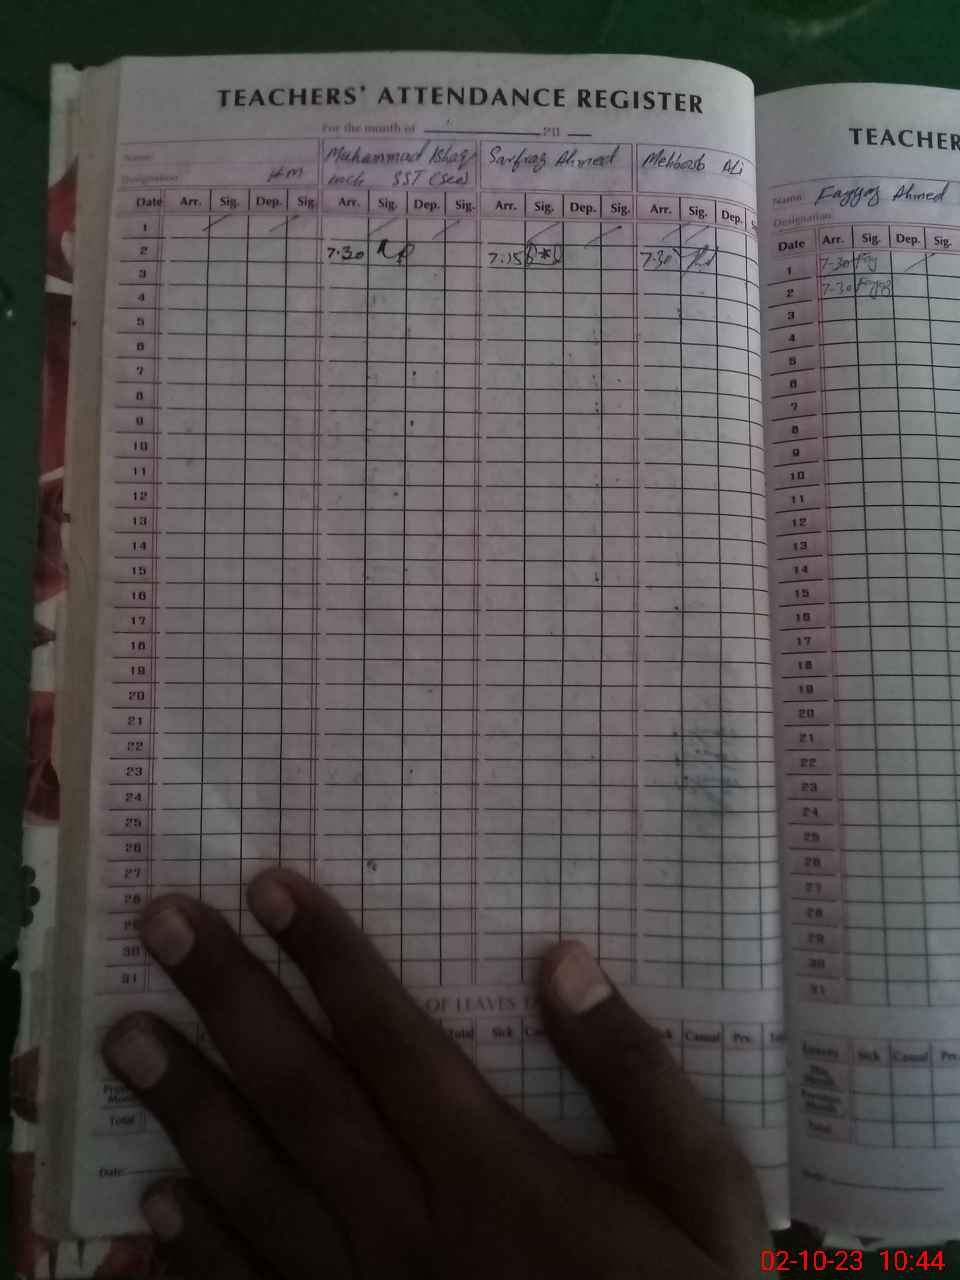 TEACHERS' ATTENDANCE REGISTER
For the month of 20
Name:
Muhammad Ishaq
Sarfraz Ahmed
Mehboob Ali
Designation
HM
SST (Sci)
Date Arr. Sig. Dep. Sig. Arr. Sig. Dep. Sig. Arr. Sig. Dep. Sig. Arr. Sig. Dep.
1
2 7.30 7.15 7.30
3
4
5
6
7
8
9
10
11
12
13
14
15
16
17
18
19
20
21
22
23
24
25
26
27
28
29
30
31
OF LEAVES
Total Sick Casual Prv.
Total
Date
TEACHER
Name Fayyaz Ahmed
Designation
Date Arr. Sig. Dep. Sig.
1 7-30
2 7-30
3
4
5
6
7
8
9
10
11
12
13
14
15
16
17
18
19
20
21
22
23
24
25
26
27
28
29
30
31
Leaves Sick Casual Prv.
This Month
Previous Month
Total
02-10-23 10:44